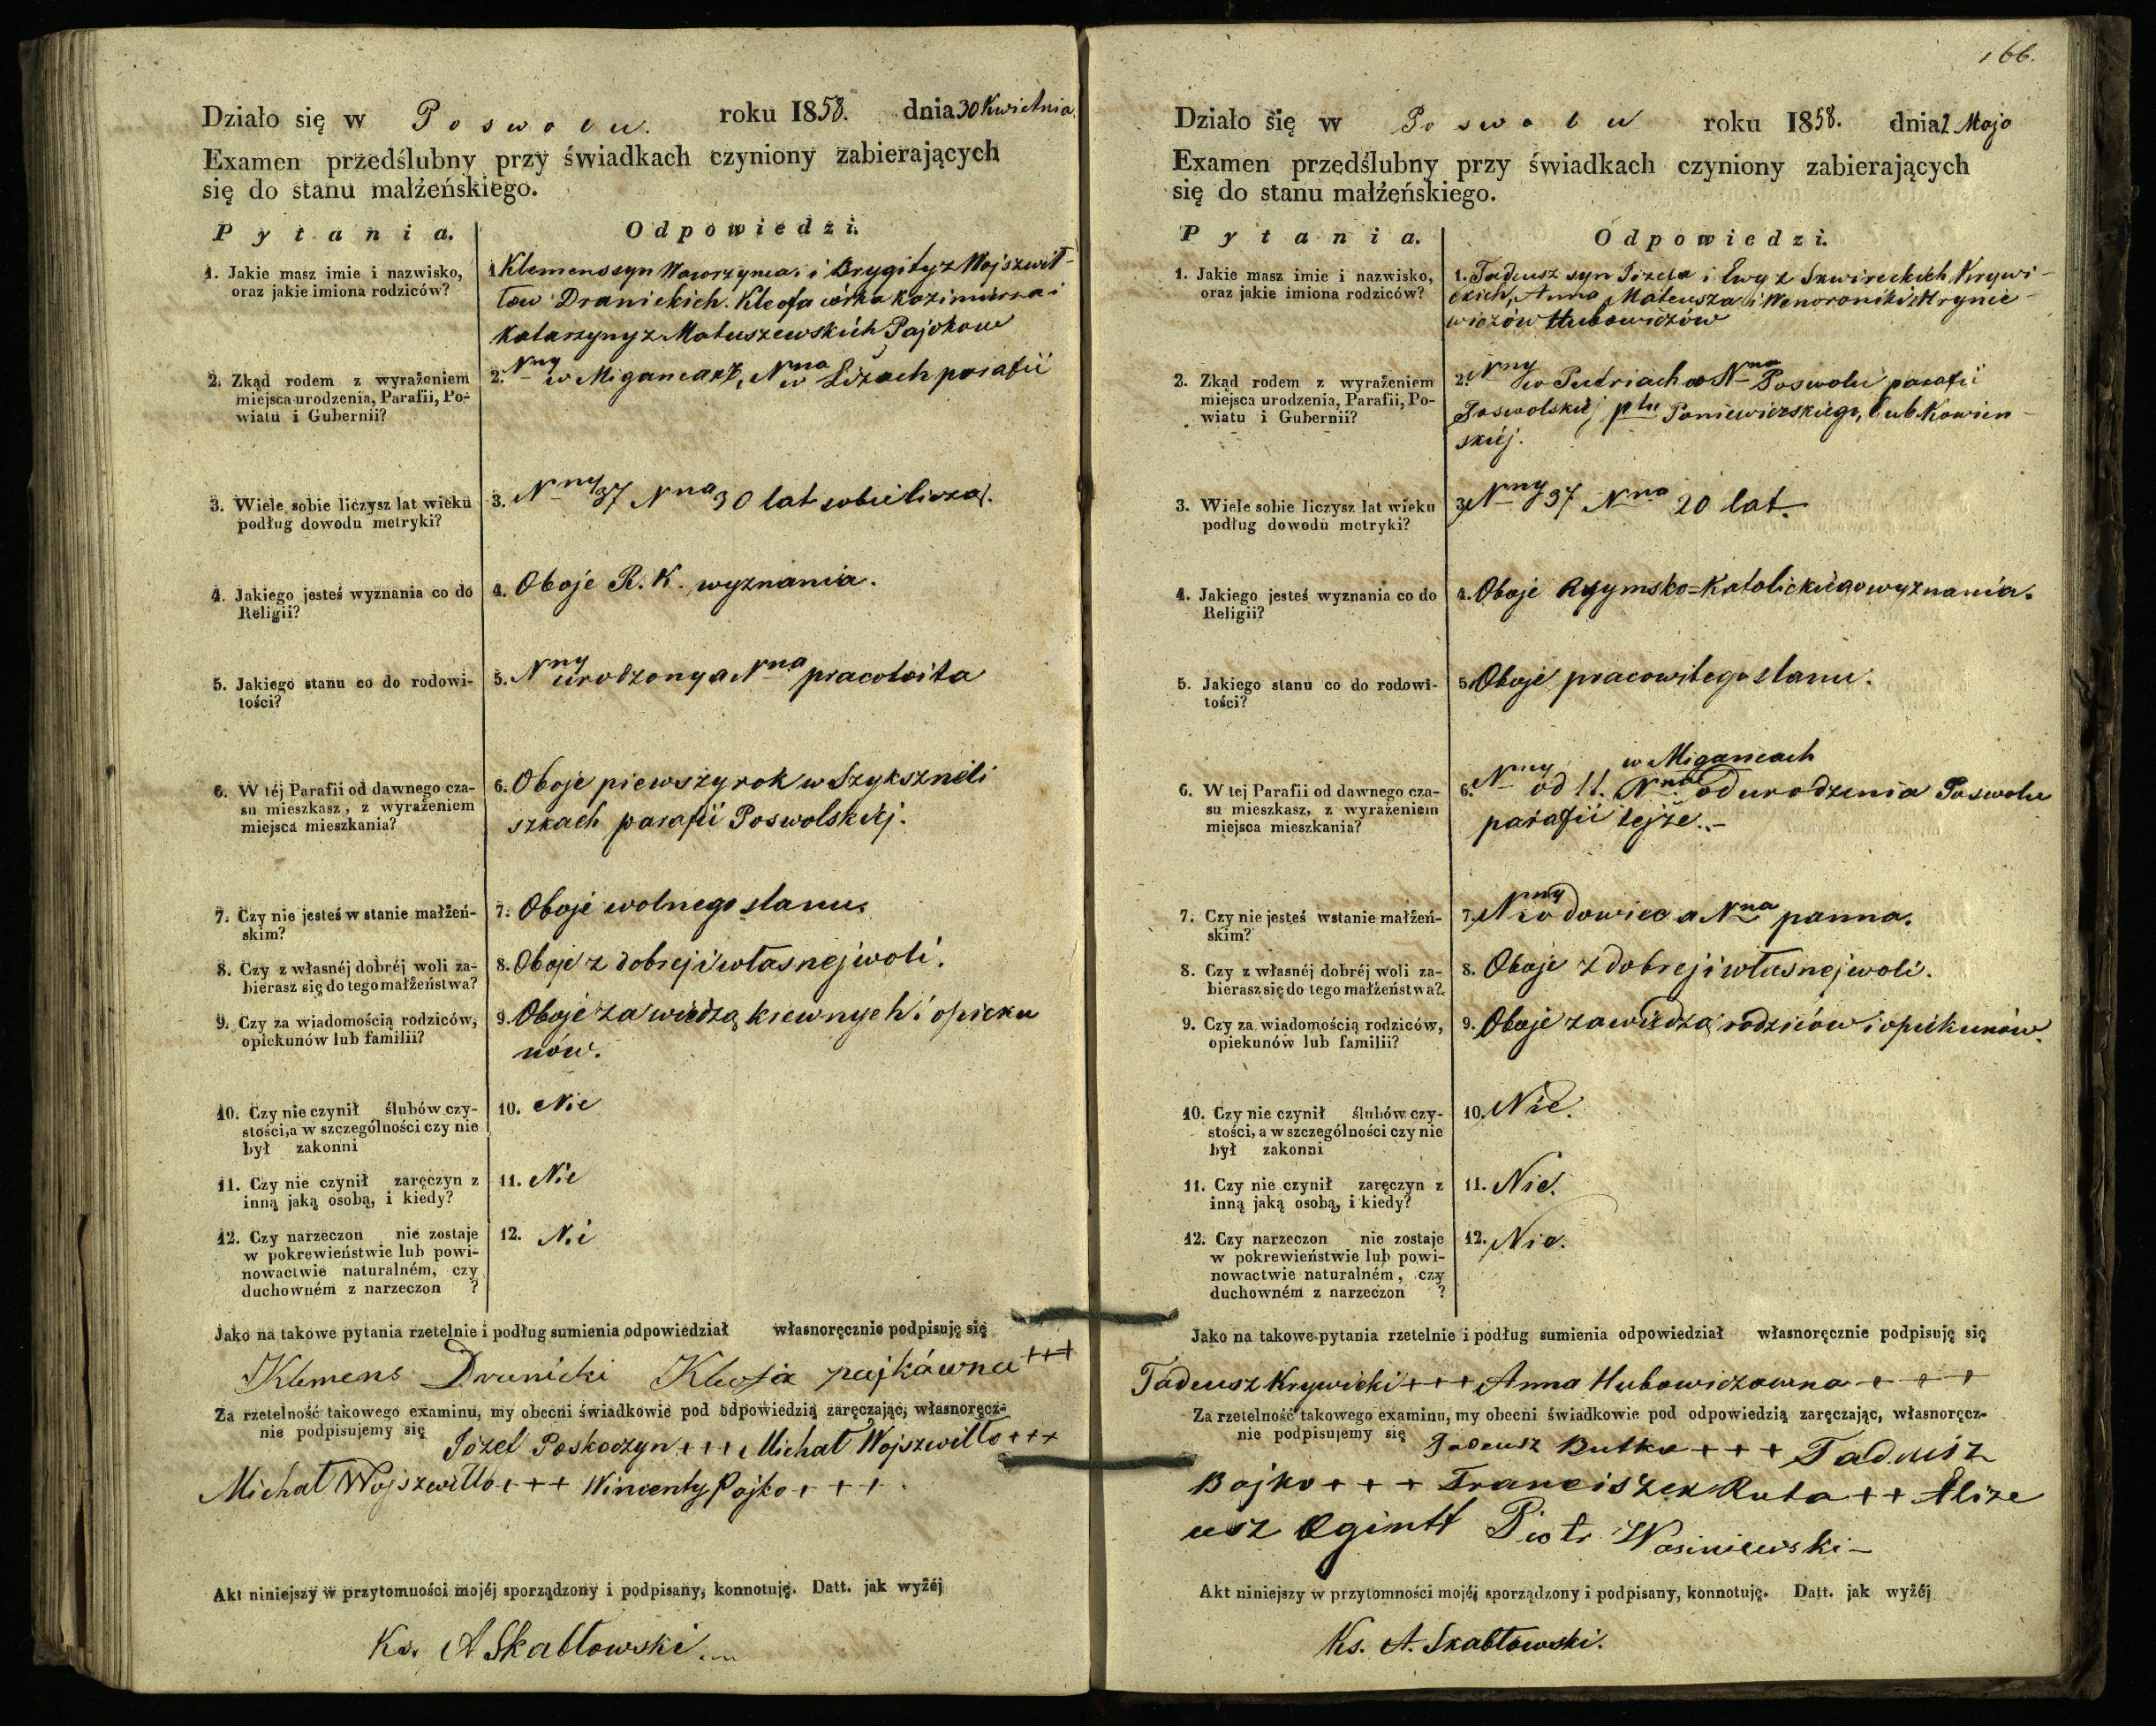 Działo się w Poswolu. roku 1858. dnia 30 Kwietnia
Examen przedślubny przy świadkach czyniony zabierających
się do stanu małżeńskiego.
Pytania. Odpowiedzi.
1. Jakie masz imie i nazwisko,
oraz jakie imiona rodziców?
1 Klemens syn Wawrzyńca i Brygity z Wojszwił-
łow Dranickich. Kleofa córka Kazimierza i
Katarzyny z Matuszewskich Pajokow
2. Zkąd rodem z wyrażeniem
miejsca urodzenia, Parafii, Po-
wiatu i Gubernii?
2. Nny w Migancach, Nna w Liżach parafii
3. Wiele sobie liczysz lat wieku
podług dowodu metryki?
3. Nny 37 Nna 30 lat sobie liczą.
4. Jakiego jesteś wyznania co do
Religii?
4. Oboje R. K. wyznania.
5. Jakiego stanu co do rodowi-
tości?
5. Nny urodzony a Nna pracowita
6. W téj Parafii od dawnego cza-
su mieszkasz, z wyrażeniem
miejsca mieszkania?
6. Oboje piewszy rok w Szyksznieli
szkach parafii Poswolskiej.
7. Czy nie jesteś w stanie małżeń-
skim?
7. Oboje wolnego stanu.
8. Czy z własnéj dobréj woli za-
bierasz się do tego małżeństwa?
8. Oboje z dobrej i własnej woli.
9. Czy za wiadomością rodziców,
opiekunów lub familii?
9. Oboje za wiedzą krewnych i opieku
nów.
10. Czy nie czynił ślubów czy-
stości, a w szczególności czy nie
był zakonni
10. Nie
11. Czy nie czynił zaręczyn z
inną jaką osobą, i kiedy?
11. Nie
12. Czy narzeczon nie zostaje
w pokrewieństwie lub powi-
nowactwie naturalném, czy
duchowném z narzeczon ?
12. Ni
Jako na takowe pytania rzetelnie i podług sumienia odpowiedział własnoręcznie podpisuję się
Klemens Dranicki Kleofa pajkówna +++
Za rzetelność takowego examinu, my obecni świadkowie pod odpowiedzią zaręczając, własnoręcz-
nie podpisujemy się Józef Poskoczyn +++ Michał Wojszwiłło +++
Michał Wojszwiłło +++ Wincenty Pajko +++
Akt niniejszy w przytomności mojéj sporządzony i podpisany, konnotuję. Datt. jak wyżéj
Ks. A Skabłowski
166.
Działo się w Poswolu roku 1858. dnia 2 Maja
Examen przedślubny przy świadkach czyniony zabierających
się do stanu małżeńskiego.
Pytania. Odpowiedzi.
1. Jakie masz imie i nazwisko,
oraz jakie imiona rodziców?
1. Tadeusz syn Józefa i Ewy z Skwireckich Krywi-
ckich, Anna Mateusza i Weroroniki z Hrynie-
wiczów Hubowiczów
2. Zkąd rodem z wyrażeniem
miejsca urodzenia, Parafii, Po-
wiatu i Gubernii?
2. Nny w Pudriach a Nna Poswolu parafii
Poswolskiej ptu Poniewiezskiego, Gub Kowien-
skiej.
3. Wiele sobie liczysz lat wieku
podług dowodu metryki?
3. Nny 37 Nna 20 lat.
4. Jakiego jesteś wyznania co do
Religii?
4. Oboje Rzymsko=Katolickiego wyznania.
5. Jakiego stanu co do rodowi-
tości?
5. Oboje pracowitego stanu.
6. W tej Parafii od dawnego cza-
su mieszkasz, z wyrażeniem
miejsca mieszkania?
w Migancach
6. Nny od Nna od urodzenia Poswolu
parafii tejże.-
7. Czy nie jesteś wstanie małżeń-
skim?
7. Nny wdowiec a Nna panna.
8. Czy z własnéj dobréj woli za-
bierasz się do tego małżeństwa?
8. Oboje z dobrej i własnej woli.
9. Czy za wiadomością rodziców,
opiekunów lub familii?
9. Oboje za wiedzą rodziców i opiekunów.
10. Czy nie czynił ślubów czy-
stości, a w szczególności czy nie
był zakonni
10. Nie.
11. Czy nie czynił zaręczyn z
inną jaką osobą, i kiedy?
11. Nie.
12. Czy narzeczon nie zostaje
w pokrewieństwie lub powi-
nowactwie naturalném, czy
duchowném z narzeczon ?
12. Nie.
Jako na takowe pytania rzetelnie i podług sumienia odpowiedział własnoręcznie podpisuję się
Tadeusz Krywicki +++ Anna Hubowiczowna +++
Za rzetelność takowego examinu, my obecni świadkowie pod odpowiedzią zaręczając, własnoręcz-
nie podpisujemy się Tadeusz Butka +++ Tadeusz
Bojko +++ Franciszek Ruta ++ Elize
usz Ogintt Piotr Wasiniewski -
Akt niniejszy w przytomności mojéj sporządzony i podpisany, konnotuję. Datt. jak wyżéj
Ks. A. Skabłowski.